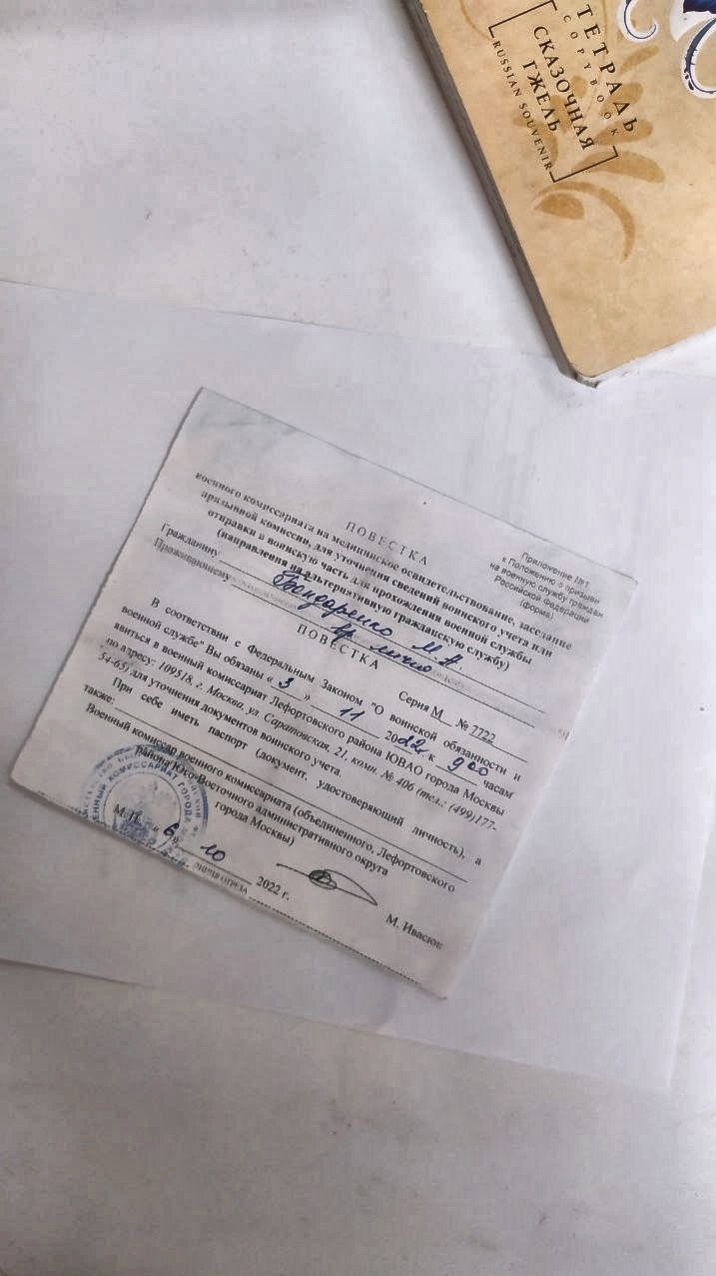 ТЕТРАДЬ
COPYBOOK
СКАЗОЧНАЯ
ГЖЕЛЬ
RUSSIAN SOUVENIR
Приложение №1
к Положению о призыве
на военную службу граждан
Российской Федерации
(форма)
ПОВЕСТКА
военного комиссариата на медицинское освидетельствование, заседание
призывной комиссии, для уточнения сведений воинского учета или
отправки в воинскую часть для прохождения военной службы
(направления на альтернативную гражданскую службу)
Гражданину Бондаренко М. А.
Проживающему вр лично
ПОВЕСТКА
Серия М № 7722
В соответствии с Федеральным Законом "О воинской обязанности и
военной службе" Вы обязаны « 3 » 11 2022г. к 900 часам
явиться в военный комиссариат Лефортовского района ЮВАО города Москвы
по адресу: 109518, г. Москва, ул. Саратовская, 21, комн. № 406 (тел.: (499)177-
54-65) для уточнения документов воинского учета.
При себе иметь паспорт (документ, удостоверяющий личность), а
также:
Военный комиссар военного комиссариата (объединенного, Лефортовского
района Юго-Восточного административного округа
города Москвы)
М. П. « 6 » 10 2022 г.
М. Ивасюк
ЛИНИЯ ОТРЕЗА
КОМИССАРИАТ ГОРОДА